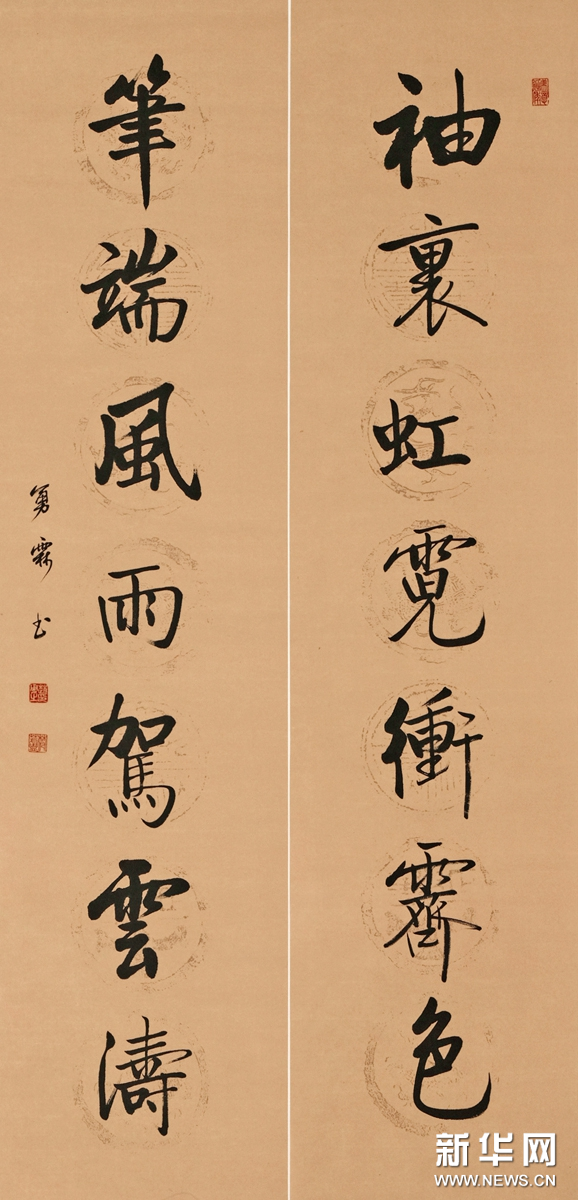 袖裏虹霓衝霽色
筆端風雨駕雲濤
勇霖书
新华网
WWW.NEWS.CN